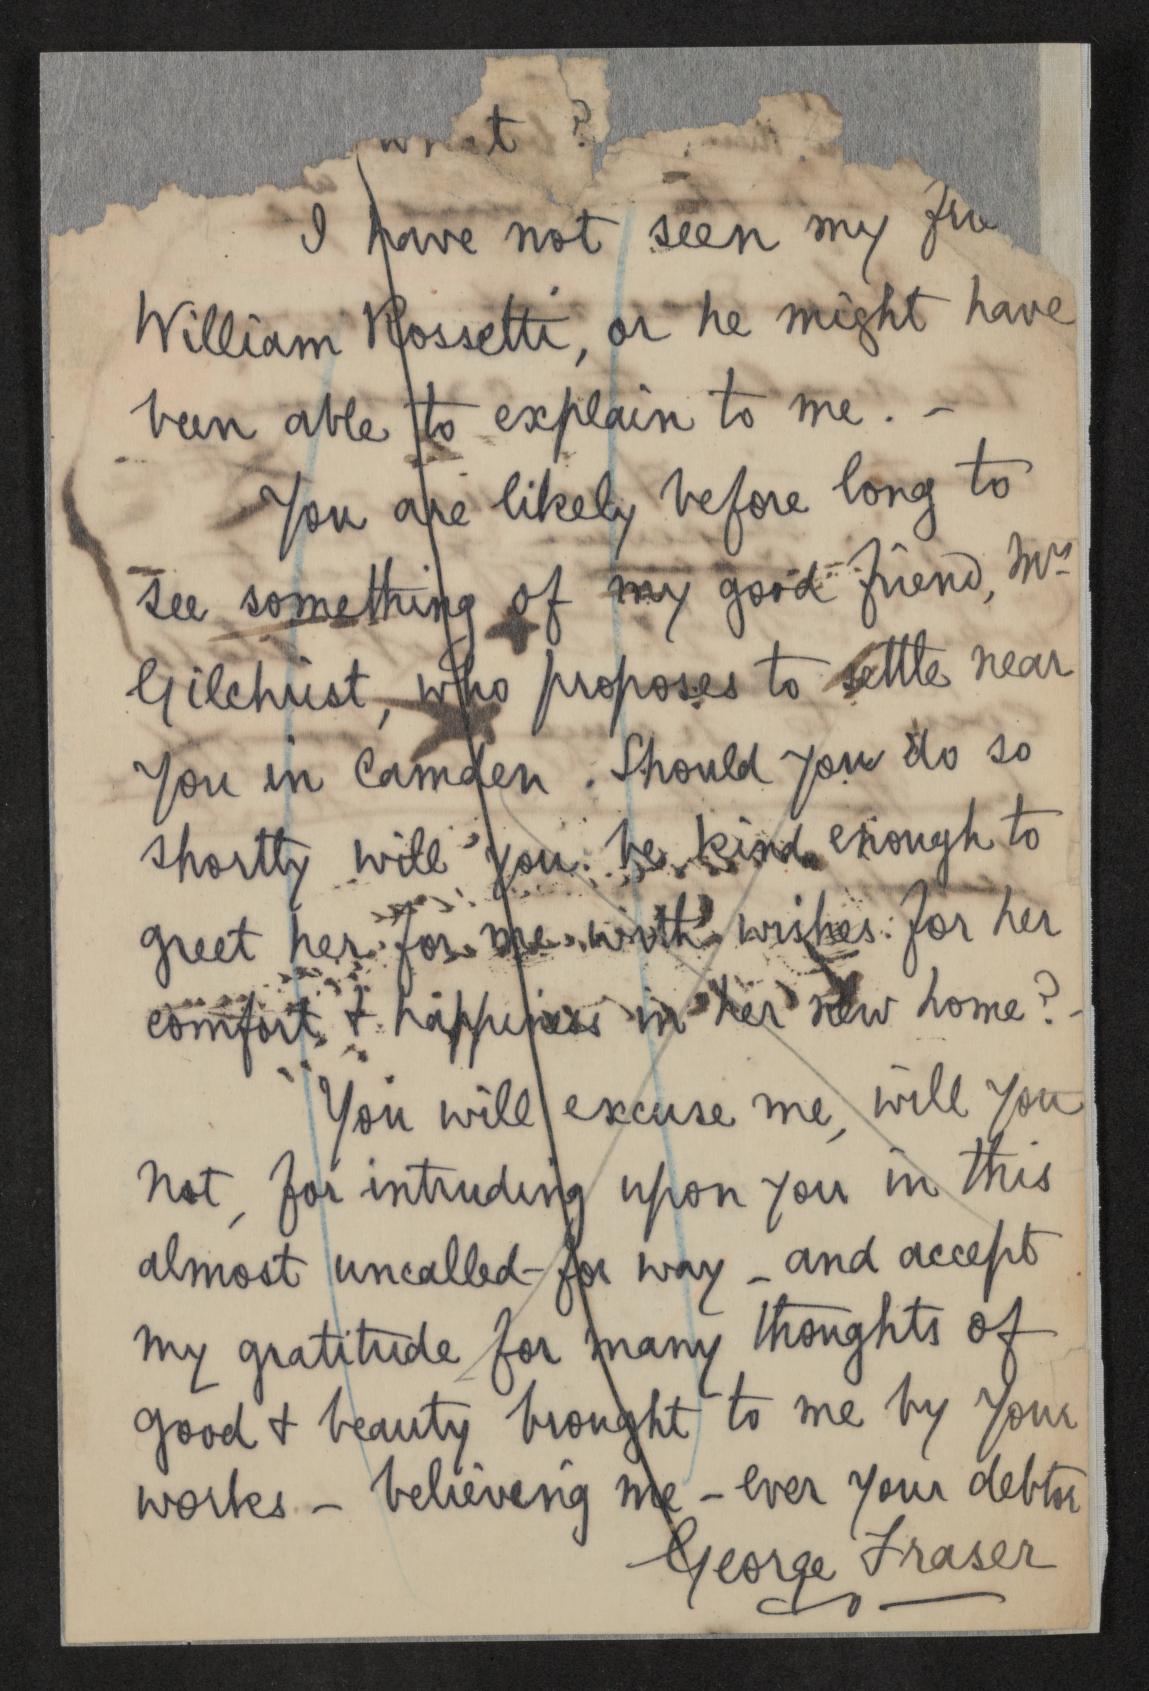 what ?
I have not seen my
William Rossetti, or he might have
been able to explain to me . -
You are likely before long to
see something of my good friend, Mrs
Gilchrist, who proposes to settle near
you in Camden . Should you do so
shortly will you be kind enough to
greet her for me with wishes for her
comfort & happiness in her new home? -
You will excuse me, will you
not, for intruding upon you in this
almost uncalled-for way - and accept
my gratitude for many thoughts of
good & beauty brought to me by your
works - believing me - ever your debtor
George Fraser